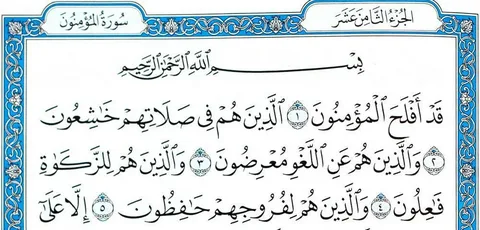 الجُزْءُ الثَّامِنَ عَشَرَ
سُورَةُ المُؤْمِنُونَ
بِسْمِ اللَّهِ الرَّحْمَٰنِ الرَّحِيمِ
قَدْ أَفْلَحَ الْمُؤْمِنُونَ ١ الَّذِينَ هُمْ فِي صَلَاتِهِمْ خَاشِعُونَ
٢ وَالَّذِينَ هُمْ عَنِ اللَّغْوِ مُعْرِضُونَ ٣ وَالَّذِينَ هُمْ لِلزَّكَوٰةِ
فَاعِلُونَ ٤ وَالَّذِينَ هُمْ لِفُرُوجِهِمْ حَافِظُونَ ٥ إِلَّا عَلَىٰ